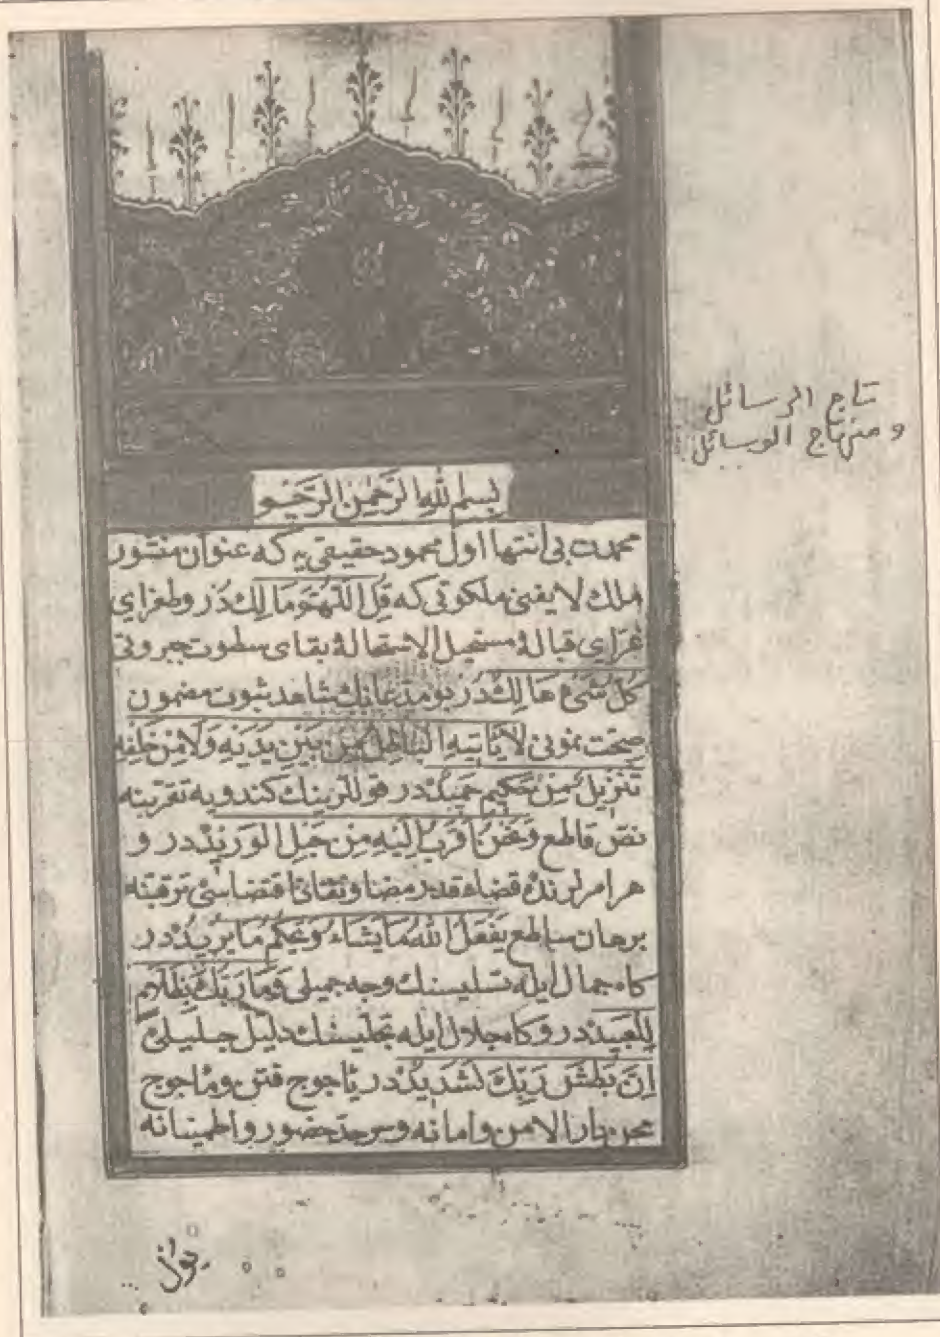 تاج الرسائل
و منهاج الوسائل
بسم الله الرحمن الرحيم
محمدت بی انتها اول محمود حقیقی یه که عنوان منشور
ملك لا یفنی ملکوتی که قل اللهم مالك در و طغرای
غرّای قبالهٔ مستحیل الاستحالهٔ بقای سطوت جبروتی
كل شئ هالك در بو مدعانك شاهد ثبوت مضمون
صحت نمونی لا يأتيه الباطل من بين يديه ولا من خلفه
تنزيل من حكيم حميددر قوللرینك کندویه تقربنه
نص قاطع ونحن اقرب اليه من حبل الوريددر و
هر امرلرنده قضاء قدر مضا اقتضاسی ترقبنه
برهان ساطع يفعل الله ما يشاء ويحكم ما يريددر
كاه جمال ایله تسلیسنك وجه جمیلی وما ربك بظلام
للعبيددر و كاه جلال ایله تجلیسنك دلیل جلیلی
ان بطش ربك لشديددر يأجوج فتن و مأجوج
محن دار الامن و امانه و سرحد حضور و اطمینانه